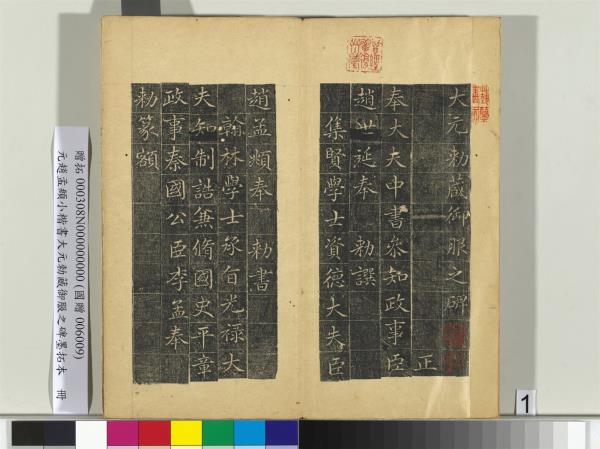 大元勅藏御服之碑
正
奉大夫中書參知政事臣
趙世延奉 勅譔
集賢學士資德大夫臣
趙孟頫奉 勅書
翰林學士承旨光祿大
夫知制誥兼脩國史平章
政事秦國公臣李孟奉
勅篆額
贈拓 000308N000000000 (國贈 006009)
元趙孟頫小楷書大元勅藏御服之碑墨拓本 冊
1